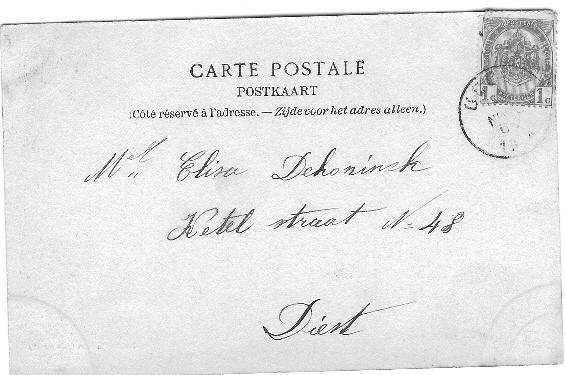 CARTE POSTALE
POSTKAART
(Côté réservé à l'adresse. — Zijde voor het adres alleen.)
1c 1c
Mell Elisa Dekoninck
Ketel straat No 48
Diest